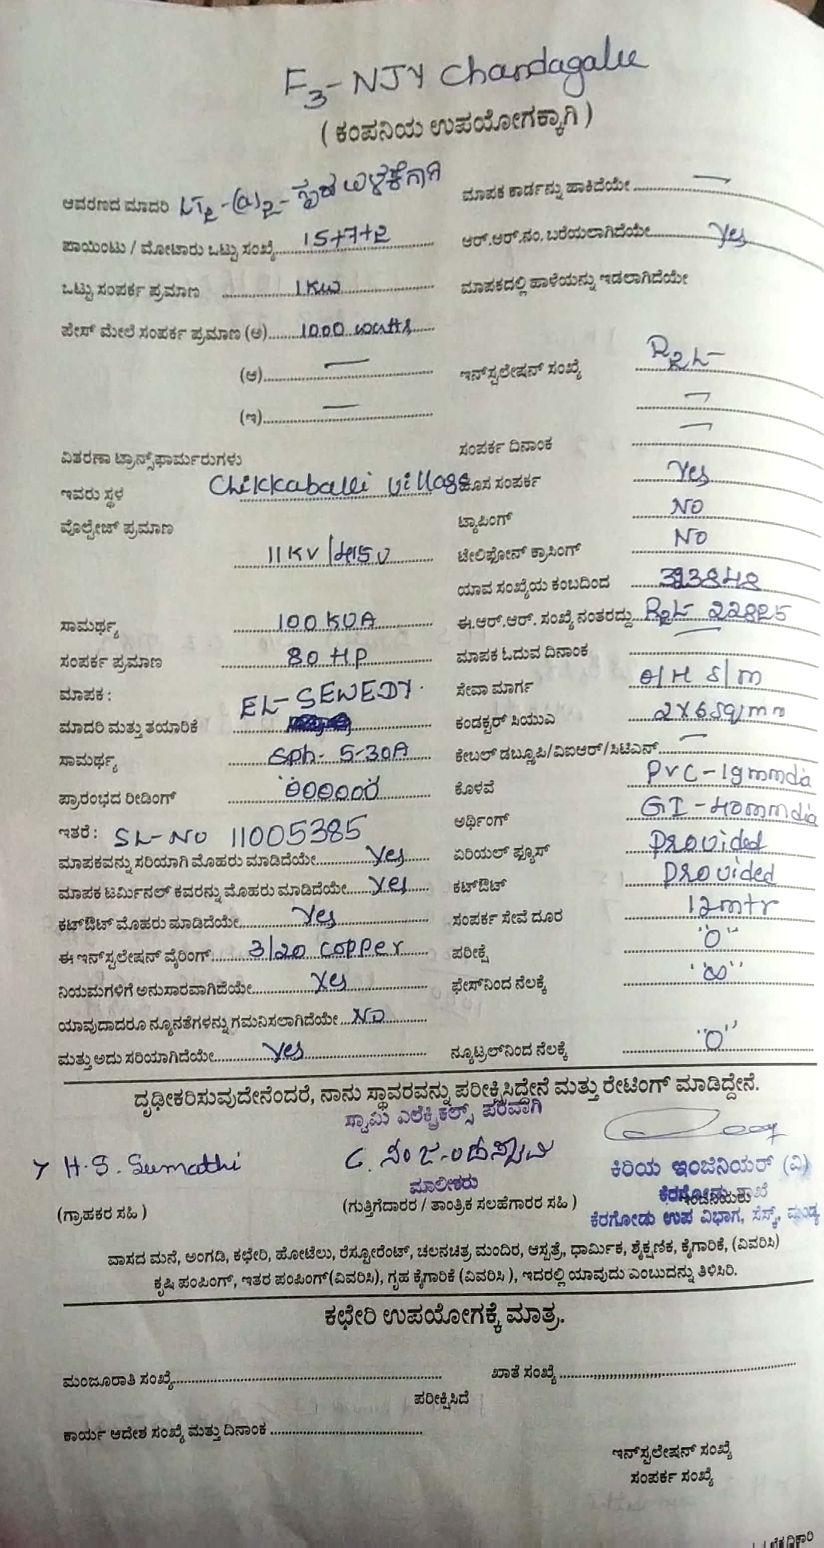 F3-NJY Chandagalu
( ಕಂಪನಿಯ ಉಪಯೋಗಕ್ಕಾಗಿ )
ಆವರಣದ ಮಾದರಿ LT2-(a)2- ಗೃಹ ಬಳಕೆಗಾಗಿ
ಮಾಪಕ ಕಾರ್ಡನ್ನು ಹಾಕಿದೆಯೇ ........ —
ಪಾಯಿಂಟು / ಮೋಟಾರು ಒಟ್ಟು ಸಂಖ್ಯೆ.... 15+7+2
ಆರ್.ಆರ್.ನಂ. ಬರೆಯಲಾಗಿದೆಯೇ........ Yes
ಒಟ್ಟು ಸಂಪರ್ಕ ಪ್ರಮಾಣ ........ 1KW
ಮಾಪಕದಲ್ಲಿ ಹಾಳೆಯನ್ನು ಇಡಲಾಗಿದೆಯೇ
ಪೇಸ್ ಮೇಲೆ ಸಂಪರ್ಕ ಪ್ರಮಾಣ (ಅ)........ 1000 watts
(ಆ)........ —
ಇನ್‌ಸ್ಟಲೇಷನ್ ಸಂಖ್ಯೆ ........ RRL-
(ಇ)........ —
ವಿತರಣಾ ಟ್ರಾನ್ಸ್‌ಫಾರ್ಮರುಗಳು
ಸಂಪರ್ಕ ದಿನಾಂಕ ........ —
ಇವರು ಸ್ಥಳ Chikkaballi village
ಹೊಸ ಸಂಪರ್ಕ ........ Yes
ವೊಲ್ಟೇಜ್ ಪ್ರಮಾಣ
ಟ್ಯಾಪಿಂಗ್ ........ NO
11KV/415V
ಟೇಲಿಫೋನ್ ಕ್ರಾಸಿಂಗ್ ........ NO
ಯಾವ ಸಂಖ್ಯೆಯ ಕಂಬದಿಂದ ........
ಸಾಮರ್ಥ್ಯ ........ 100 KVA
ಈ.ಆರ್.ಆರ್. ಸಂಖ್ಯೆ ನಂತರದ್ದು.. RRL- 22825
ಸಂಪರ್ಕ ಪ್ರಮಾಣ ........ 80 HP
ಮಾಪಕ ಓದುವ ದಿನಾಂಕ ........ —
ಮಾಪಕ : EL-SEWEDY.
ಸೇವಾ ಮಾರ್ಗ ........ O/H S/m
ಮಾದರಿ ಮತ್ತು ತಯಾರಿಕೆ ........
ಕಂಡಕ್ಟರ್ ಸಿಯುವಿ ........ 2X6Sq/mm
ಸಾಮರ್ಥ್ಯ ........ Sph- 5-30A
ಕೇಬಲ್ ಡಬ್ಲೂಪಿ/ವಿಐಆರ್/ಸಿಟಿಎನ್........ —
ಪ್ರಾರಂಭದ ರೀಡಿಂಗ್ ........ 000000
ಕೊಳವೆ ........ PVC-19mmdia
ಇತರೆ : SL-No 11005385
ಅರ್ಥಿಂಗ್ ........ GI-40mmdia
ಮಾಪಕವನ್ನು ಸರಿಯಾಗಿ ಮೊಹರು ಮಾಡಿದೆಯೇ........ Yes
ಏರಿಯಲ್ ಫ್ಯೂಸ್ ........ Provided
ಮಾಪಕ ಟರ್ಮಿನಲ್ ಕವರನ್ನು ಮೊಹರು ಮಾಡಿದೆಯೇ..... Yes
ಕಟ್‌ಔಟ್ ........ Provided
ಕಟ್‌ಔಟ್ ಮೊಹರು ಮಾಡಿದೆಯೇ........ Yes
ಸಂಪರ್ಕ ಸೇವೆ ದೂರ ........ 12mtr
ಈ ಇನ್‌ಸ್ಟಲೇಷನ್ ವೈರಿಂಗ್........ 3/20 copper
ಪರೀಕ್ಷೆ ........ "0"
ನಿಯಮಗಳಿಗೆ ಅನುಸಾರವಾಗಿದೆಯೇ........ Yes
ಫೇಸ್‌ನಿಂದ ನೆಲಕ್ಕೆ ........ "∞"
ಯಾವುದಾದರೂ ನ್ಯೂನತೆಗಳನ್ನು ಗಮನಿಸಲಾಗಿದೆಯೇ... No
ಮತ್ತು ಅದು ಸರಿಯಾಗಿದೆಯೇ........ Yes
ನ್ಯೂಟ್ರಲ್‌ನಿಂದ ನೆಲಕ್ಕೆ ........ "0"
ದೃಢೀಕರಿಸುವುದೇನೆಂದರೆ, ನಾನು ಸ್ಥಾವರವನ್ನು ಪರೀಕ್ಷಿಸಿದ್ದೇನೆ ಮತ್ತು ರೇಟಿಂಗ್ ಮಾಡಿದ್ದೇನೆ.
ಸ್ವಾಮಿ ಎಲೆಕ್ಟ್ರಿಕಲ್ಸ್ ಪರವಾಗಿ
H.S. Sumathi
ಮಾಲೀಕರು
ಕಿರಿಯ ಇಂಜಿನಿಯರ್ (ವಿ)
ಕೆರಗೋಡು ಶಾಖೆ
(ಗ್ರಾಹಕರ ಸಹಿ )
(ಗುತ್ತಿಗೆದಾರರ / ತಾಂತ್ರಿಕ ಸಲಹೆಗಾರರ ಸಹಿ )
ಕೆರಗೋಡು ಉಪ ವಿಭಾಗ, ಸೆಸ್ಕ್, ಮಂಡ್ಯ
ವಾಸದ ಮನೆ, ಅಂಗಡಿ, ಕಛೇರಿ, ಹೋಟೆಲು, ರೆಸ್ಟೋರೆಂಟ್, ಚಲನಚಿತ್ರ ಮಂದಿರ, ಆಸ್ಪತ್ರೆ, ಧಾರ್ಮಿಕ, ಶೈಕ್ಷಣಿಕ, ಕೈಗಾರಿಕೆ, (ವಿವರಿಸಿ)
ಕೃಷಿ ಪಂಪಿಂಗ್, ಇತರ ಪಂಪಿಂಗ್(ವಿವರಿಸಿ), ಗೃಹ ಕೈಗಾರಿಕೆ (ವಿವರಿಸಿ ), ಇದರಲ್ಲಿ ಯಾವುದು ಎಂಬುದನ್ನು ತಿಳಿಸಿರಿ.
ಕಛೇರಿ ಉಪಯೋಗಕ್ಕೆ ಮಾತ್ರ.
ಮಂಜೂರಾತಿ ಸಂಖ್ಯೆ........
ಖಾತೆ ಸಂಖ್ಯೆ ........
ಪರೀಕ್ಷಿಸಿದೆ
ಕಾರ್ಯ ಆದೇಶ ಸಂಖ್ಯೆ ಮತ್ತು ದಿನಾಂಕ ........
ಇನ್‌ಸ್ಟಲೇಷನ್ ಸಂಖ್ಯೆ
ಸಂಪರ್ಕ ಸಂಖ್ಯೆ